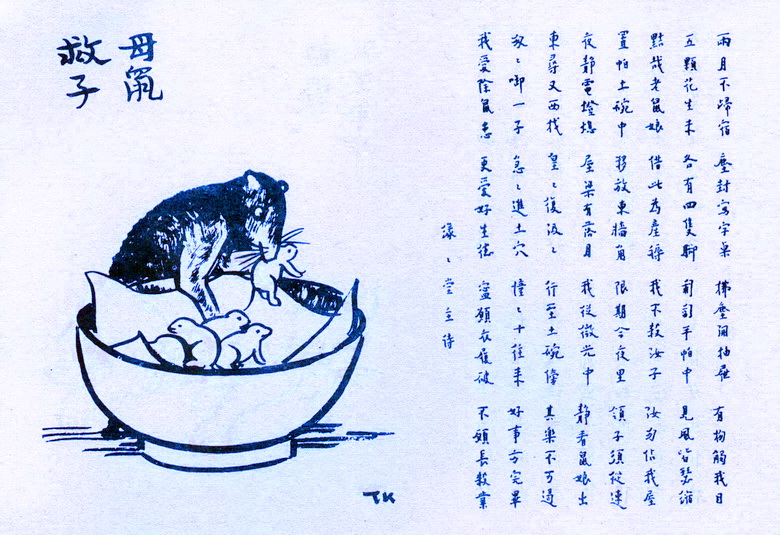 母鼠
救子
兩月不歸宿 塵封寫字桌 拂塵開抽屜 有物觸我目
五顆花生米 各有四隻腳 匍匐手帕中 見風皆瑟縮
黠哉老鼠娘 借此為產褥 我不殺汝子 汝勿佔我屋
置帕土碗中 移放東牆角 限期今夜里 領子須從速
夜靜電燈熄 屋梁有落月 我從微光中 靜看鼠娘出
東尋又西找 皇〻復汲〻 行至土碗傍 其樂不可遏
次〻啣一子 急〻進土穴 憧〻十往來 好事方完畢
我愛除鼠患 更愛好生德 寧願衣履破 不願長殺業
緣〻堂主詩
TK